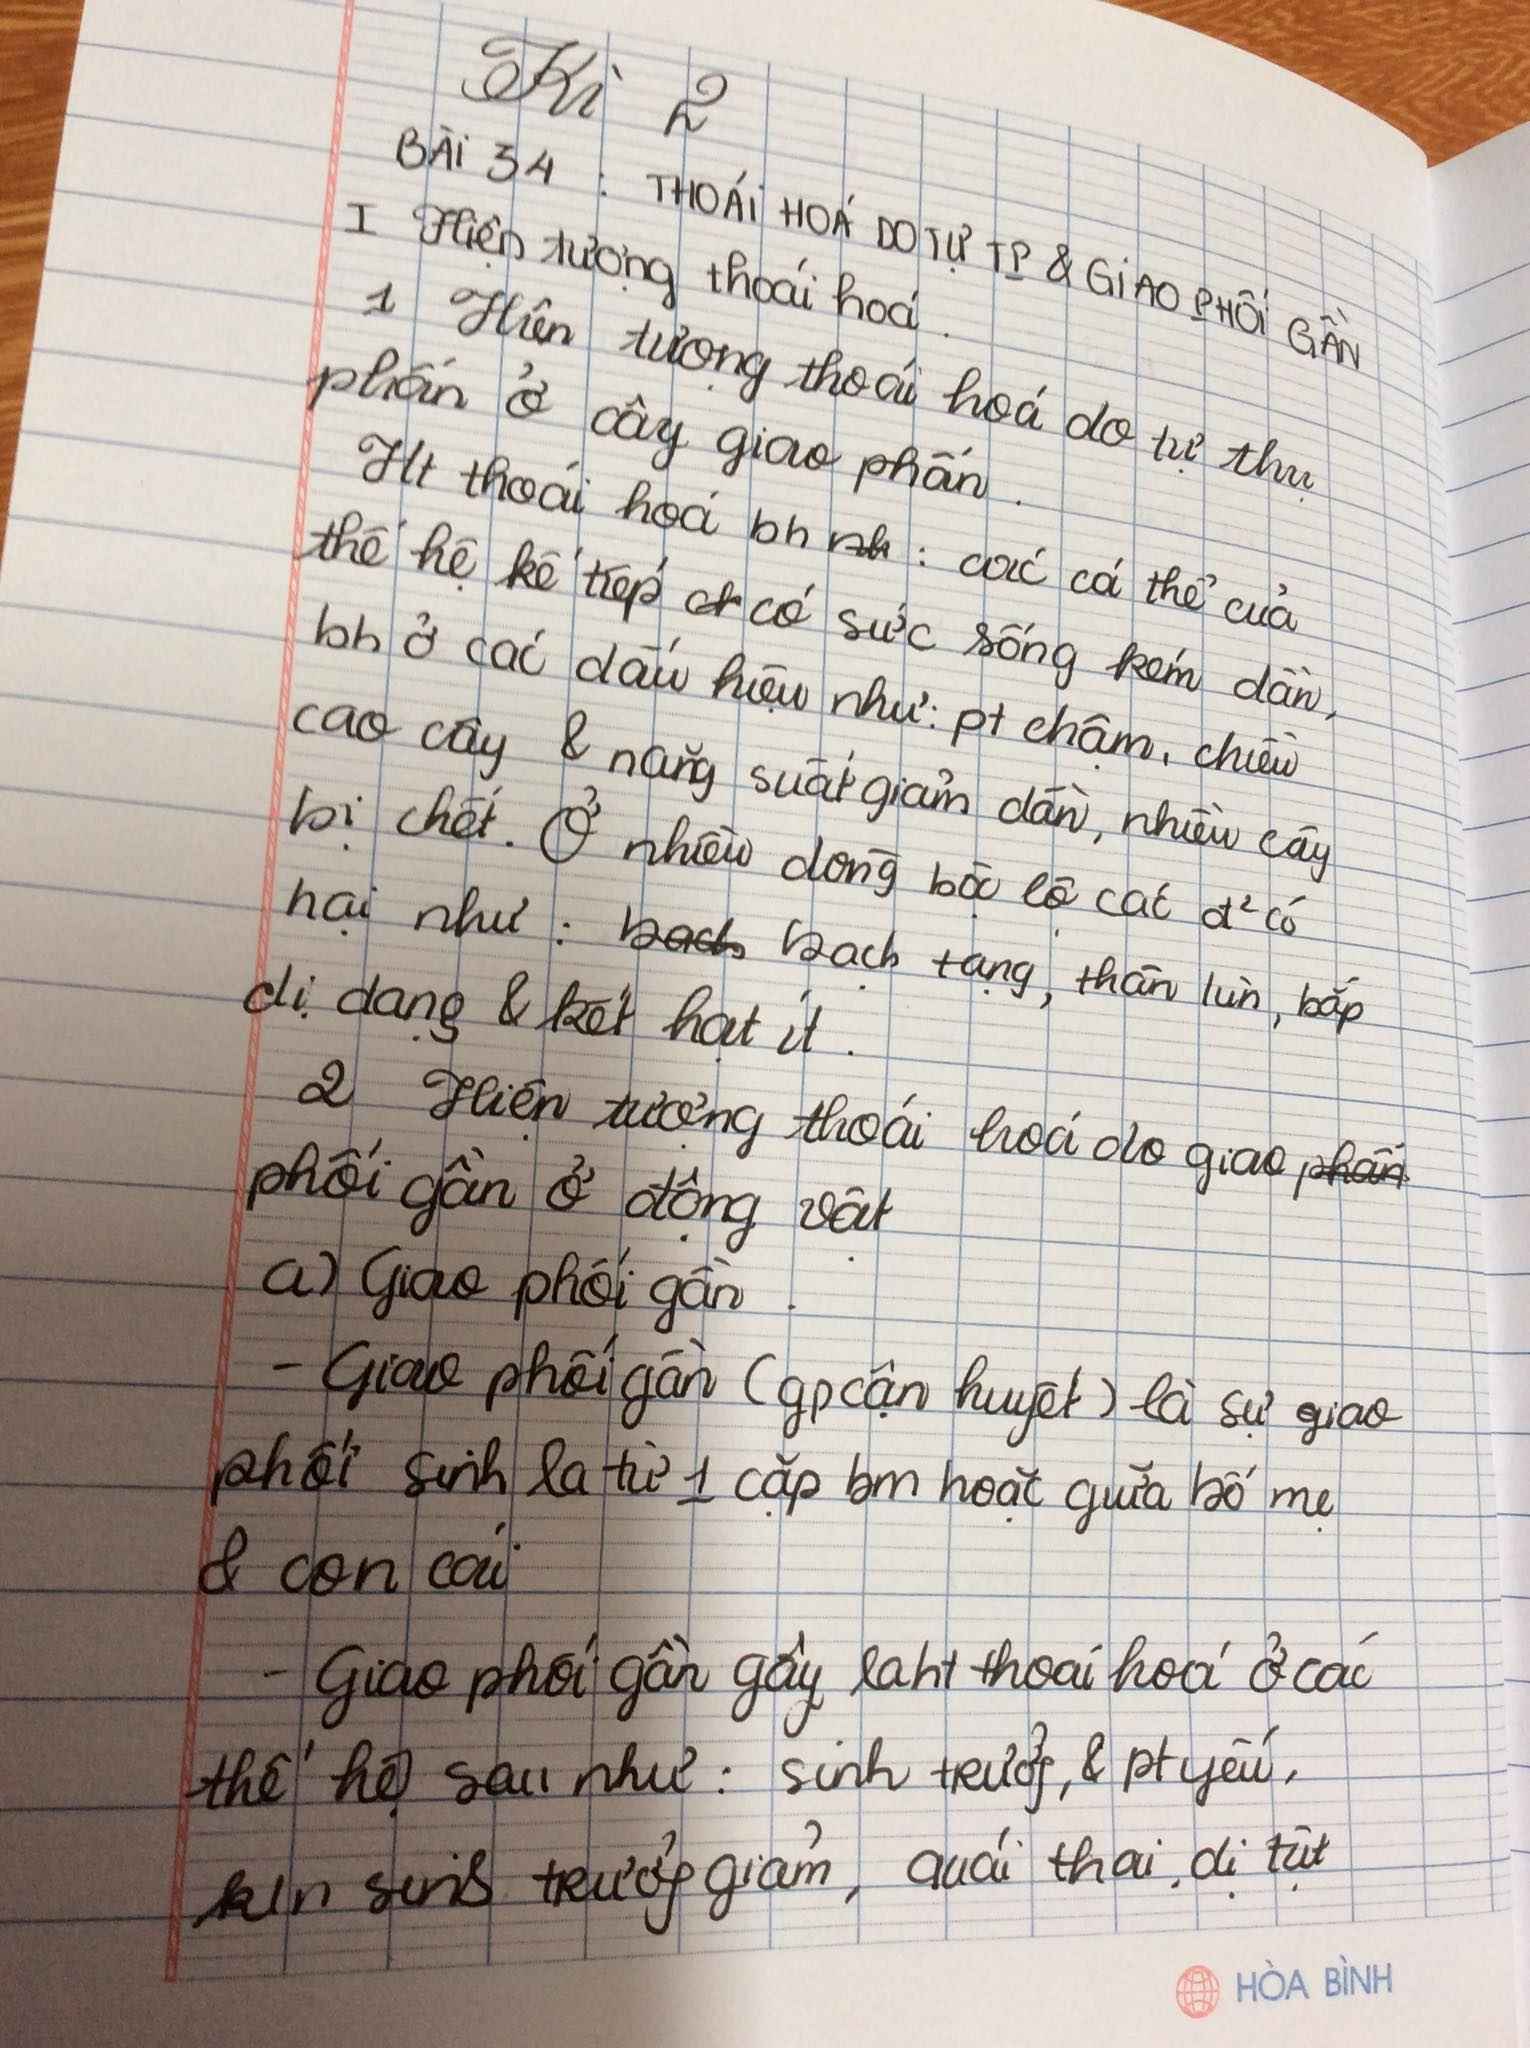 Kì 2
BÀI 34 : THOÁI HOÁ DO TỰ TP & GIAO PHỐI GẦN
I Hiện tượng thoái hoá.
1 Hiện tượng thoái hoá do tự thụ
phấn ở cây giao phấn.
Ht thoái hoá bh : các cá thể của
thế hệ kế tiếp có sức sống kém dần,
bh ở các dấu hiệu như: pt chậm, chiều
cao cây & năng suất giảm dần, nhiều cây
bị chết. Ở nhiều dòng bộc lộ các đ² có
hại như : bạch tạng, thân lùn, bắp
dị dạng & kết hạt ít.
2 Hiện tượng thoái hoá do giao
phối gần ở động vật
a) Giao phối gần.
- Giao phối gần (gp cận huyết) là sự giao
phối sinh ra từ 1 cặp bm hoặc giữa bố mẹ
& con cái
- Giao phối gần gây ra ht thoái hoá ở các
thế hệ sau như : sinh trưởng & pt yếu,
k/n sinh trưởng giảm, quái thai, dị tật
HÒA BÌNH